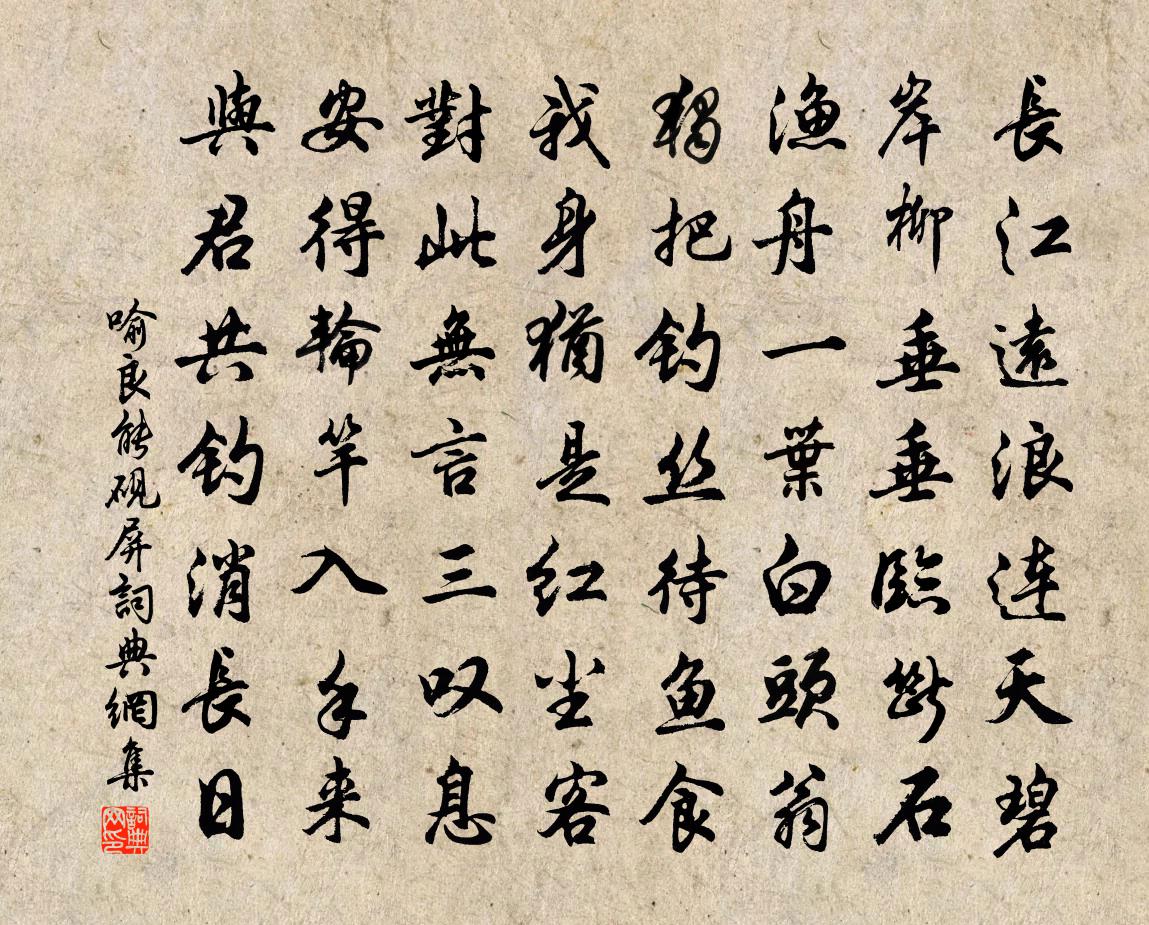 長江遠浪連天碧
岸柳垂垂臨斷石
漁舟一葉白頭翁
獨把釣丝待鱼食
我身猶是紅尘客
對此無言三叹息
安得輪竿入手来
與君共釣消長日
喻良能硯屏詞典網集
詞典網印